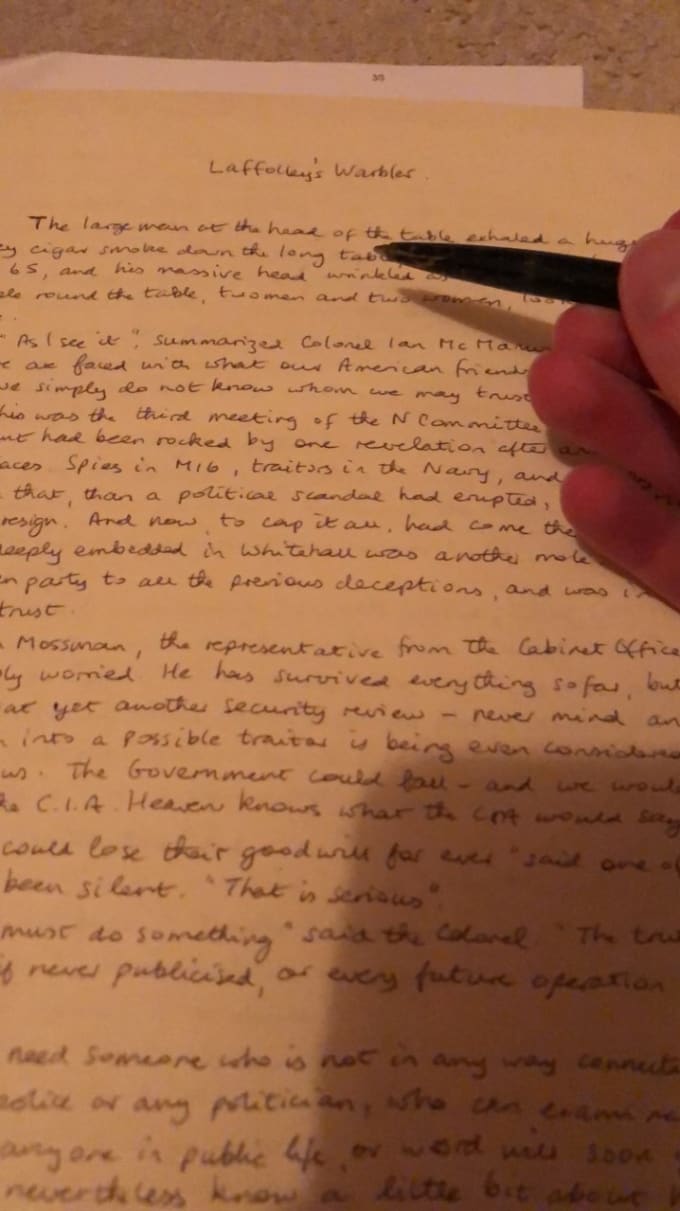 35
Laffolley's Warbler.
The large man at the head of the table exhaled a huge
cigar smoke down the long
65, and his massive head wrinkled
round the table, two men and two women,
"As I see it", summarized Colonel Ian
are faced with what our American friends
we simply do not know whom we may trust
this was the third meeting of the N Committee
had been rocked by one revelation after
Spies in MI6, traitors in the Navy, and
that, than a political scandal had erupted,
resign. And now, to cap it all, had come the
deeply embedded in Whitehall was another mole
party to all the previous deceptions, and was
trust.
Mossman, the representative from the Cabinet Office
worried. He has survived everything so far, but
at yet another security review - never mind an
into a possible traitor is being even considered
us. The Government could fall - and we would
the C.I.A. Heaven knows what the CIA would say
could lose their goodwill for ever" said one of
been silent. "That is serious".
must do something" said the Colonel. "The
if never publicised, or every future operation
need someone who is not in any way
police or any politician, who can examine
anyone in public life, or word will soon
nevertheless know a little bit about